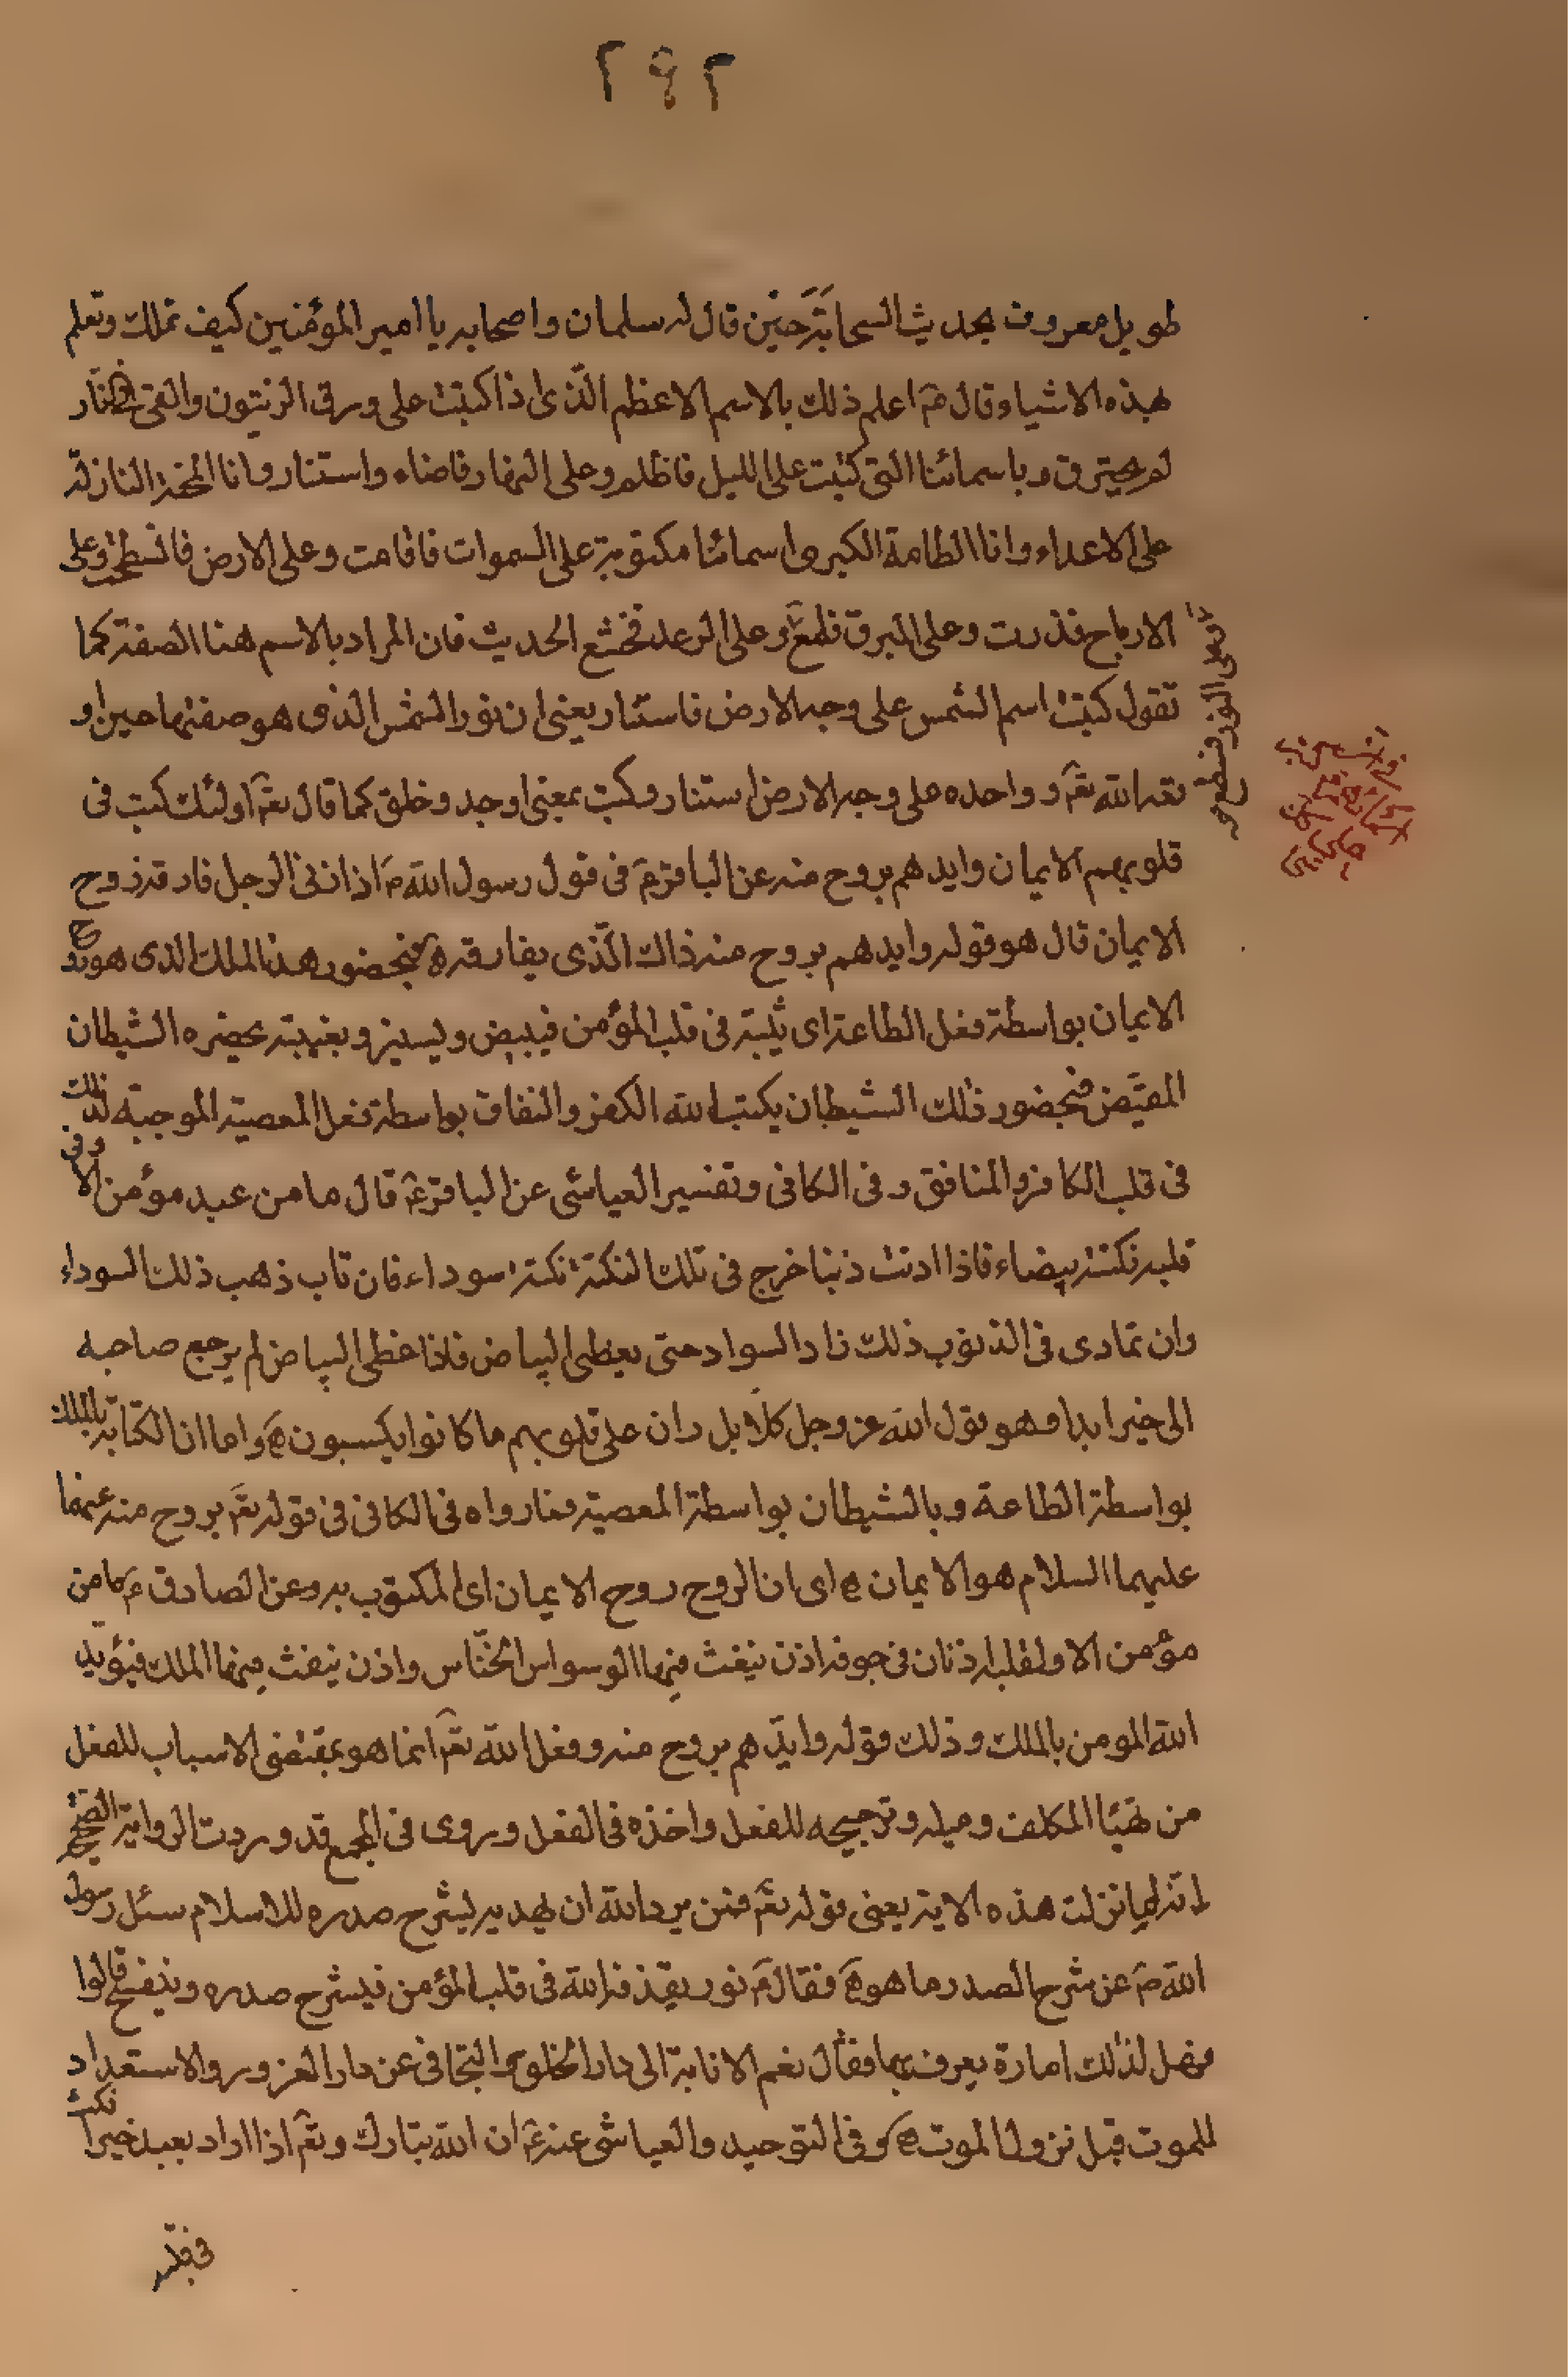 ٢٩٢
طويل معروف بحديث السحابة حين قال له سلمان واصحابه يا امير المؤمنين كيف تملك وتعلم
بهذه الاشياء وقال ع اعلم ذلك بالاسم الاعظم الّذى اذا كتبت على ورق الزيتون والقى فى النّار
لم يحترق وباسمائنا التى كتبت على الليل فاظلم وعلى النهار فاضاء واستنار وانا المحنة النازلة
على الاعداء وانا الطامة الكبرى واسمائنا مكتوبة على السموات فاقامت وعلى الارض فانسطحت وعلى
الارياح فذرت وعلى البرق فلمع وعلى الرعد فخشع الحديث فان المراد بالاسم هنا الصفة كما
تقول كتبت اسم الشمس على وجه الارض فاستنار يعنى ان نور الشمس الذى هو صفتها حين او
الله تع‍ و واحده على وجه الارض استنار وكتب بمعنى اوجد وخلق كما قال تع‍ اولئك كتب فى
قلوبهم الايمان وايدهم بروح منه عن الباقر ع فى قول رسول الله ص اذا زنى الرجل فارقه روح
الايمان قال هو قوله وايدهم بروح منه ذاك الّذى يفارقه فبحضور هذا الملك الذى هو روح
الايمان بواسطة فعل الطاعة اى يثبته فى قلب المؤمن فيبيض ويستنير وبغيبته يحضره الشيطان
المقيّض فبحضور ذلك الشيطان يكتب الله الكفر والنفاق بواسطة فعل المعصية الموجبة لذلك
فى قلب الكافر والمنافق وفى الكافى وتفسير العياشى عن الباقر ع قال ما من عبد مؤمن الا وفى
قلبه نكتة بيضاء فاذا اذنب ذنبا خرج فى تلك النكتة نكتة سوداء فان تاب ذهب ذلك السوداء
وان تمادى فى الذنوب ذلك زاد السواد حتى يغطى البياض فاذا غطى البياض لم يرجع صاحبه
الى خير ابدا وهو قول الله عز وجل كلا بل ران على قلوبهم ما كانوا يكسبون واما ان الكتابة بالملك
بواسطة الطاعة وبالشيطان بواسطة المعصية فما رواه فى الكافى فى قوله تع‍ بروح منه عنهما
عليهما السلام هو الايمان اى ان الروح روح الايمان اى المكتوب به وعن الصادق ع ما من
مؤمن الا ولقلبه اذنان فى جوفه اذن ينفث فيها الوسواس الخنّاس واذن ينفث فيها الملك فيؤيد
الله المومن بالملك وذلك قوله وايّدهم بروح منه وفعل الله تع‍ انما هو بمقتضى الاسباب للفعل
من تهيّا المكلف وميله وترجيحه للفعل واخذه فى الفعل وروى فى المجمع قد وردت الرواية الصحيحة
انه لما نزلت هذه الاية يعنى قوله تع‍ فمن يرد الله ان يهديه يشرح صدره للاسلام سئل رسول
الله ص عن شرح الصدر ما هو فقال ص نور يقذفه الله فى قلب المؤمن فيشرح صدره وينفسح قالوا
فهل لذلك امارة يعرف بها فقال نعم الانابة الى دار الخلود والتجافى عن دار الغرور والاستعداد
للموت قبل نزول الموت وفى التوحيد والعياشى عنه ع ان الله تبارك وتع‍ اذا اراد بعبد خيرا نكت
فى قلبه